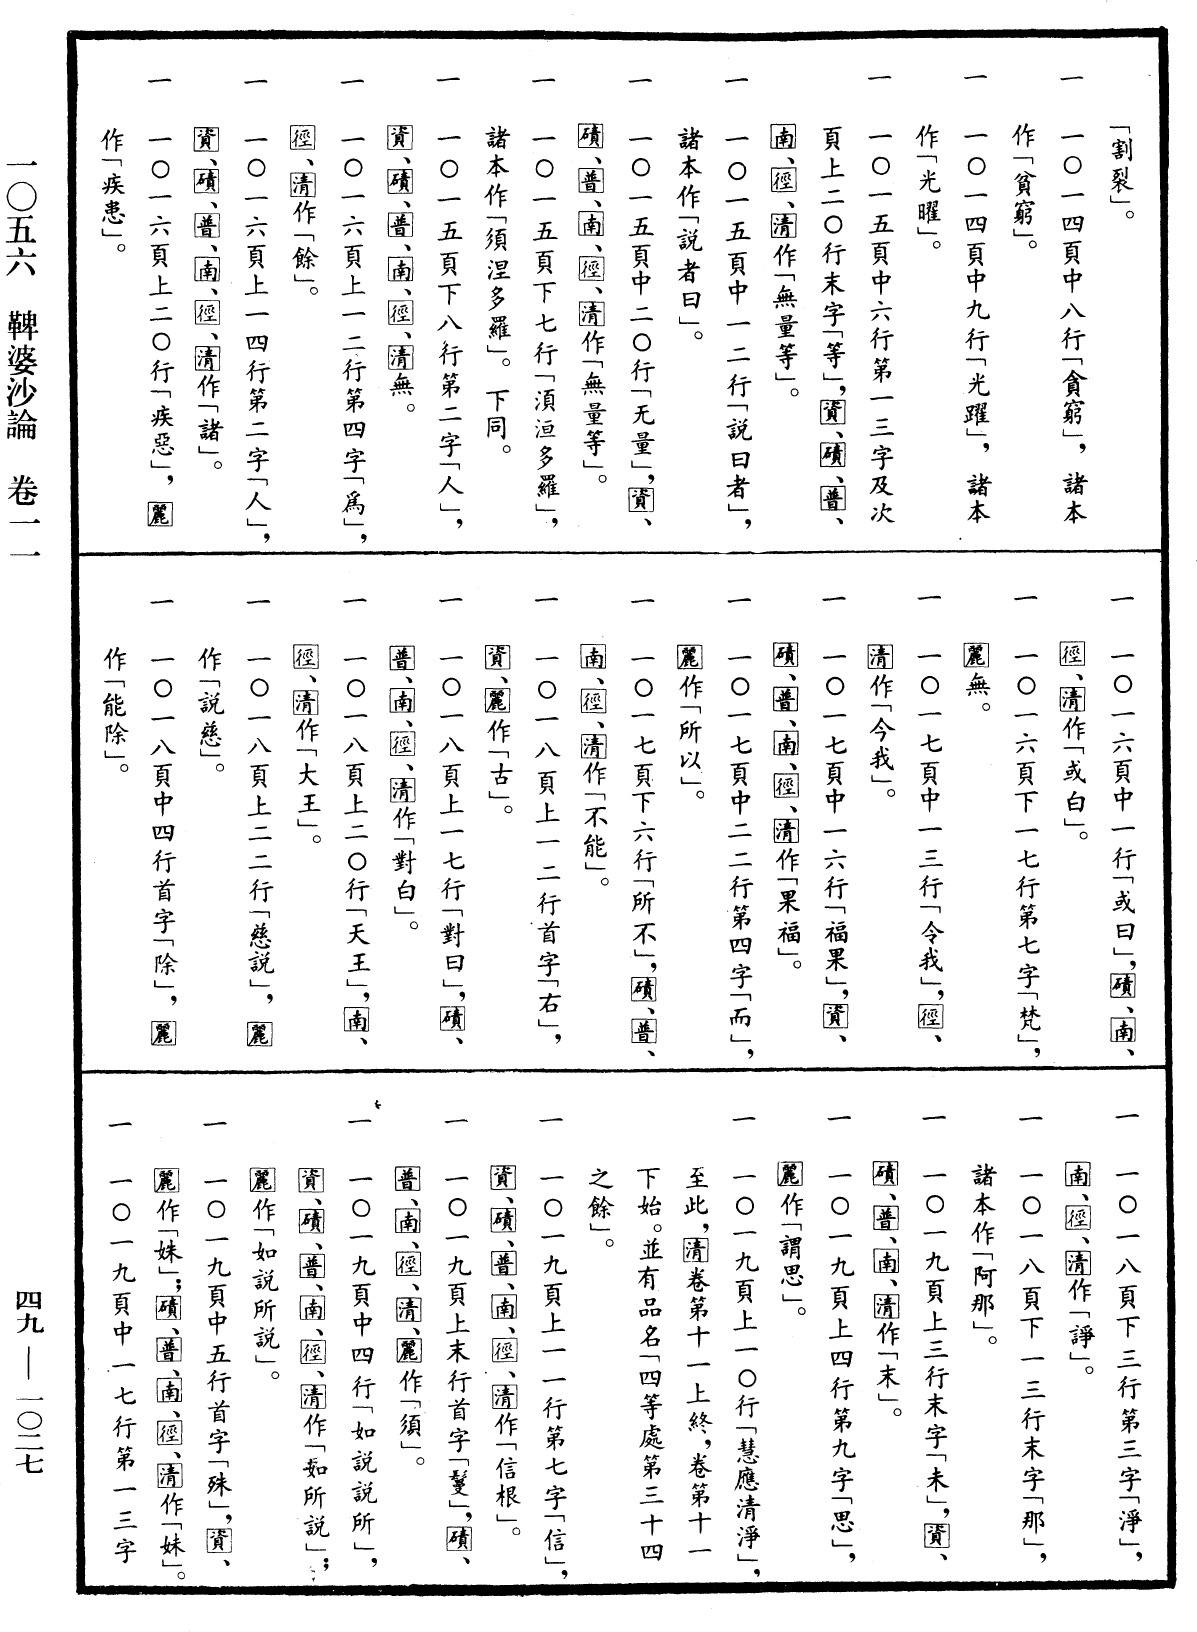 「割裂」。
一 一〇一四頁中八行「貪窮」，諸本
作「貧窮」。
一 一〇一四頁中九行「光躍」，諸本
作「光曜」。
一 一〇一五頁中六行第一三字及次
頁上二〇行末字「等」，資、磧、普、
南、徑、清作「無量等」。
一 一〇一五頁中一二行「說曰者」，
諸本作「說者曰」。
一 一〇一五頁中二〇行「无量」，資、
磧、普、南、徑、清作「無量等」。
一 一〇一五頁下七行「湏洹多羅」，
諸本作「須涅多羅」。下同。
一 一〇一五頁下八行第二字「人」，
資、磧、普、南、徑、清無。
一 一〇一六頁上一二行第四字「爲」，
徑、清作「餘」。
一 一〇一六頁上一四行第二字「人」，
資、磧、普、南、徑、清作「諸」。
一 一〇一六頁上二〇行「疾惡」，麗
作「疾患」。
一 一〇一六頁中一行「或曰」，磧、南、
徑、清作「或白」。
一 一〇一六頁下一七行第七字「梵」，
麗無。
一 一〇一七頁中一三行「令我」，徑、
清作「今我」。
一 一〇一七頁中一六行「福果」，資、
磧、普、南、徑、清作「果福」。
一 一〇一七頁中二二行第四字「而」，
麗作「所以」。
一 一〇一七頁下六行「所不」，磧、普、
南、徑、清作「不能」。
一 一〇一八頁上一二行首字「右」，
資、麗作「古」。
一 一〇一八頁上一七行「對曰」，磧、
普、南、徑、清作「對白」。
一 一〇一八頁上二〇行「天王」，南、
徑、清作「大王」。
一 一〇一八頁上二二行「慈説」，麗
作「説慈」。
一 一〇一八頁中四行首字「除」，麗
作「能除」。
一 一〇一八頁下三行第三字「淨」，
南、徑、清作「諍」。
一 一〇一八頁下一三行末字「那」，
諸本作「阿那」。
一 一〇一九頁上三行末字「未」，資、
磧、普、南、清作「末」。
一 一〇一九頁上四行第九字「思」，
麗作「謂思」。
一 一〇一九頁上一〇行「慧應清淨」，
至此，清卷第十一上終，卷第十一
下始。並有品名「四等處第三十四
之餘」。
一 一〇一九頁上一一行第七字「信」，
資、磧、普、南、徑、清作「信根」。
一 一〇一九頁上末行首字「鬘」，磧、
普、南、徑、清、麗作「須」。
一 一〇一九頁中四行「如説説所」，
資、磧、普、南、徑、清作「如所説」；
麗作「如説所説」。
一 一〇一九頁中五行首字「殊」，資、
麗作「姝」；磧、普、南、徑、清作「妹」。
一 一〇一九頁中一七行第一三字
一〇五六 鞞婆沙論 卷一一
四九 — 一〇二七